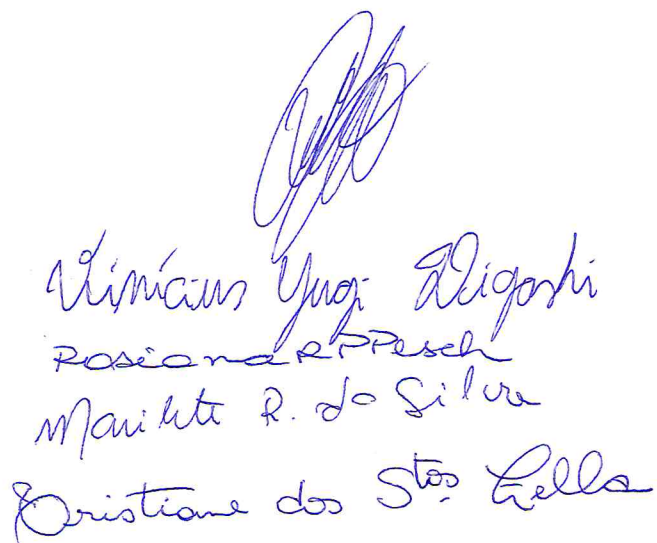 Vinícius Yugi Higashi
Rosiana R P Pesch
Marilete R. da Silva
Cristiane dos Stos Zella